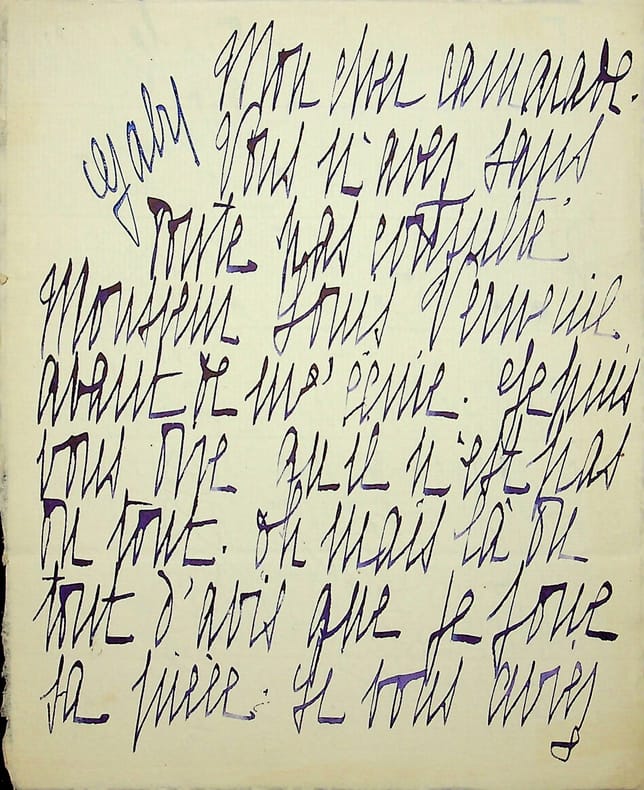 Mon cher camarade.
Gaby
Vous n'avez sans
doute pas consulté
Monsieur Louis Verneuil
avant de m'écrire. Je puis
vous dire qu'il n'est pas
du tout. Oh mais là du
tout d'avis que je joue
sa pièce. Si vous aviez